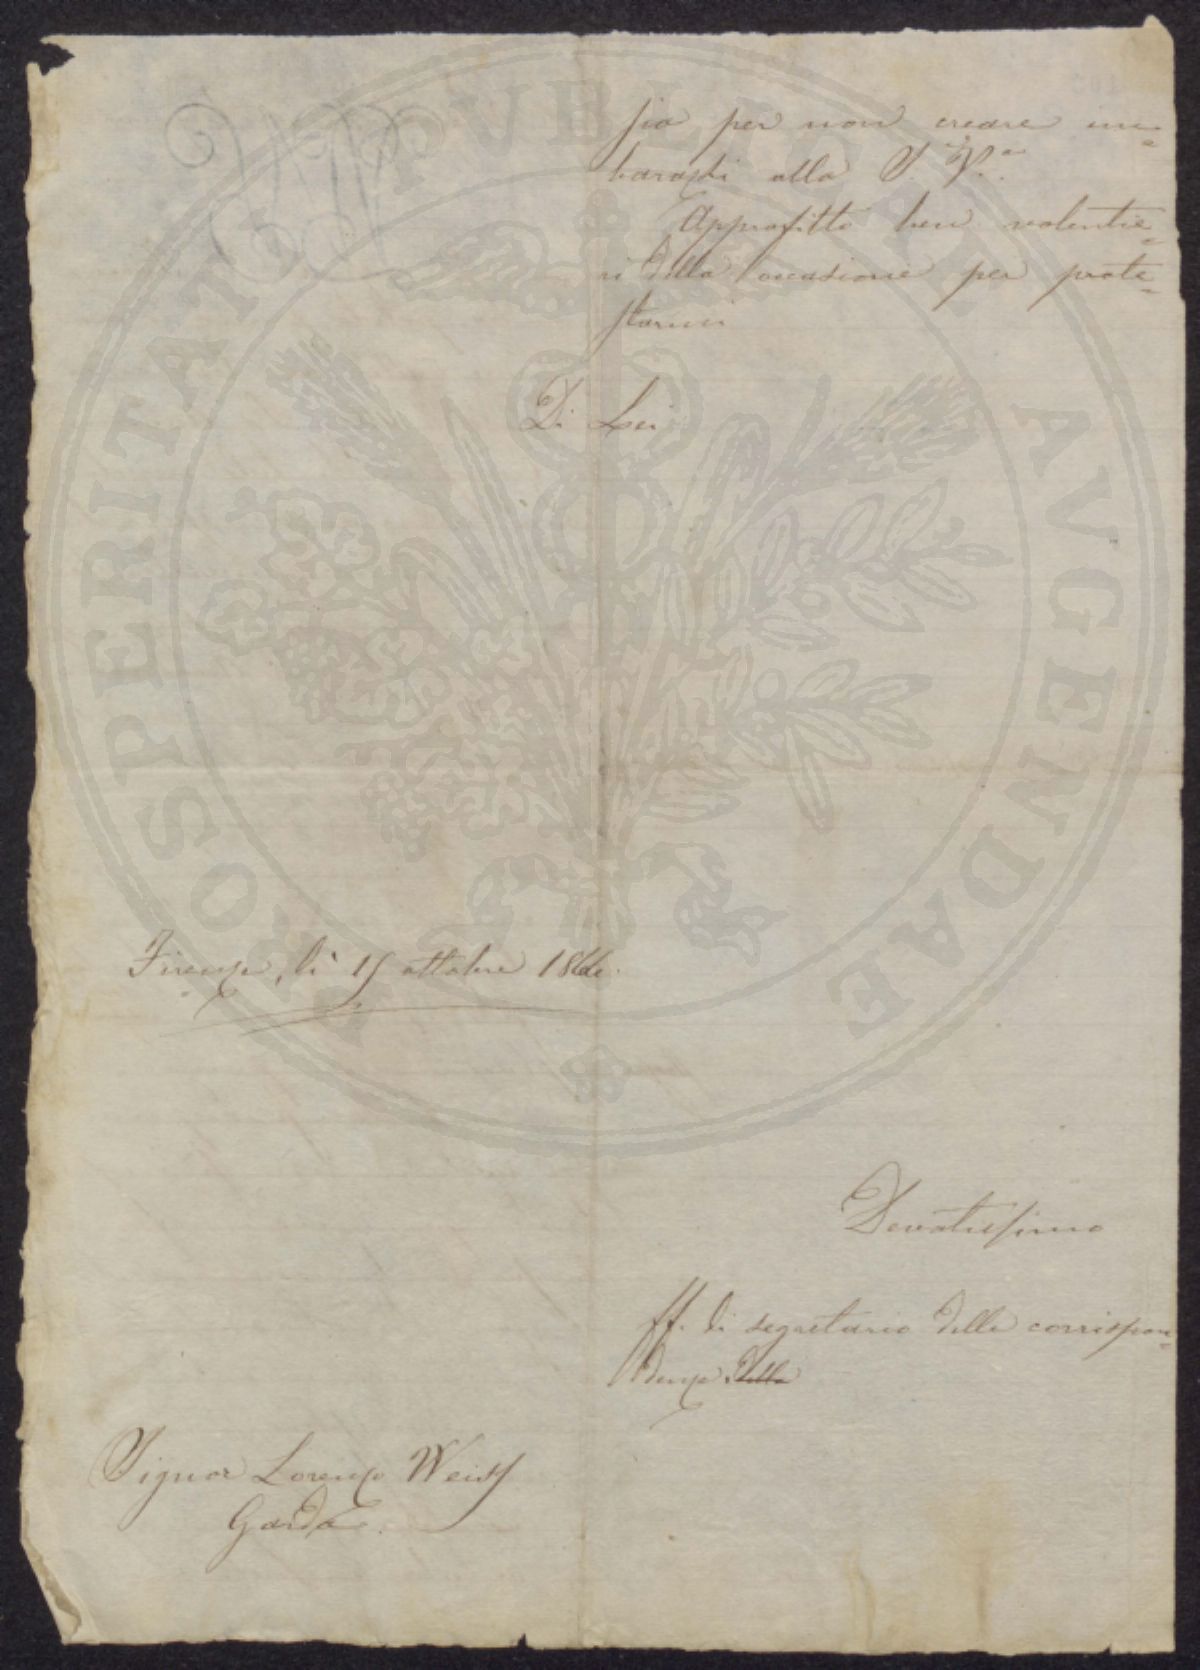 sia per non creare im=
barazzi alla S. V.a
Approfitto ben volentie=
ri della occasione per prote=
starmi
Di Lei
Firenze, li 15 ottobre 1866.
Devotissimo
ff. di segretario delle corrispon=
denze della
Signor Lorenzo Weiss
Garda.
PROSPERITATI PVBLICAE AVGENDAE